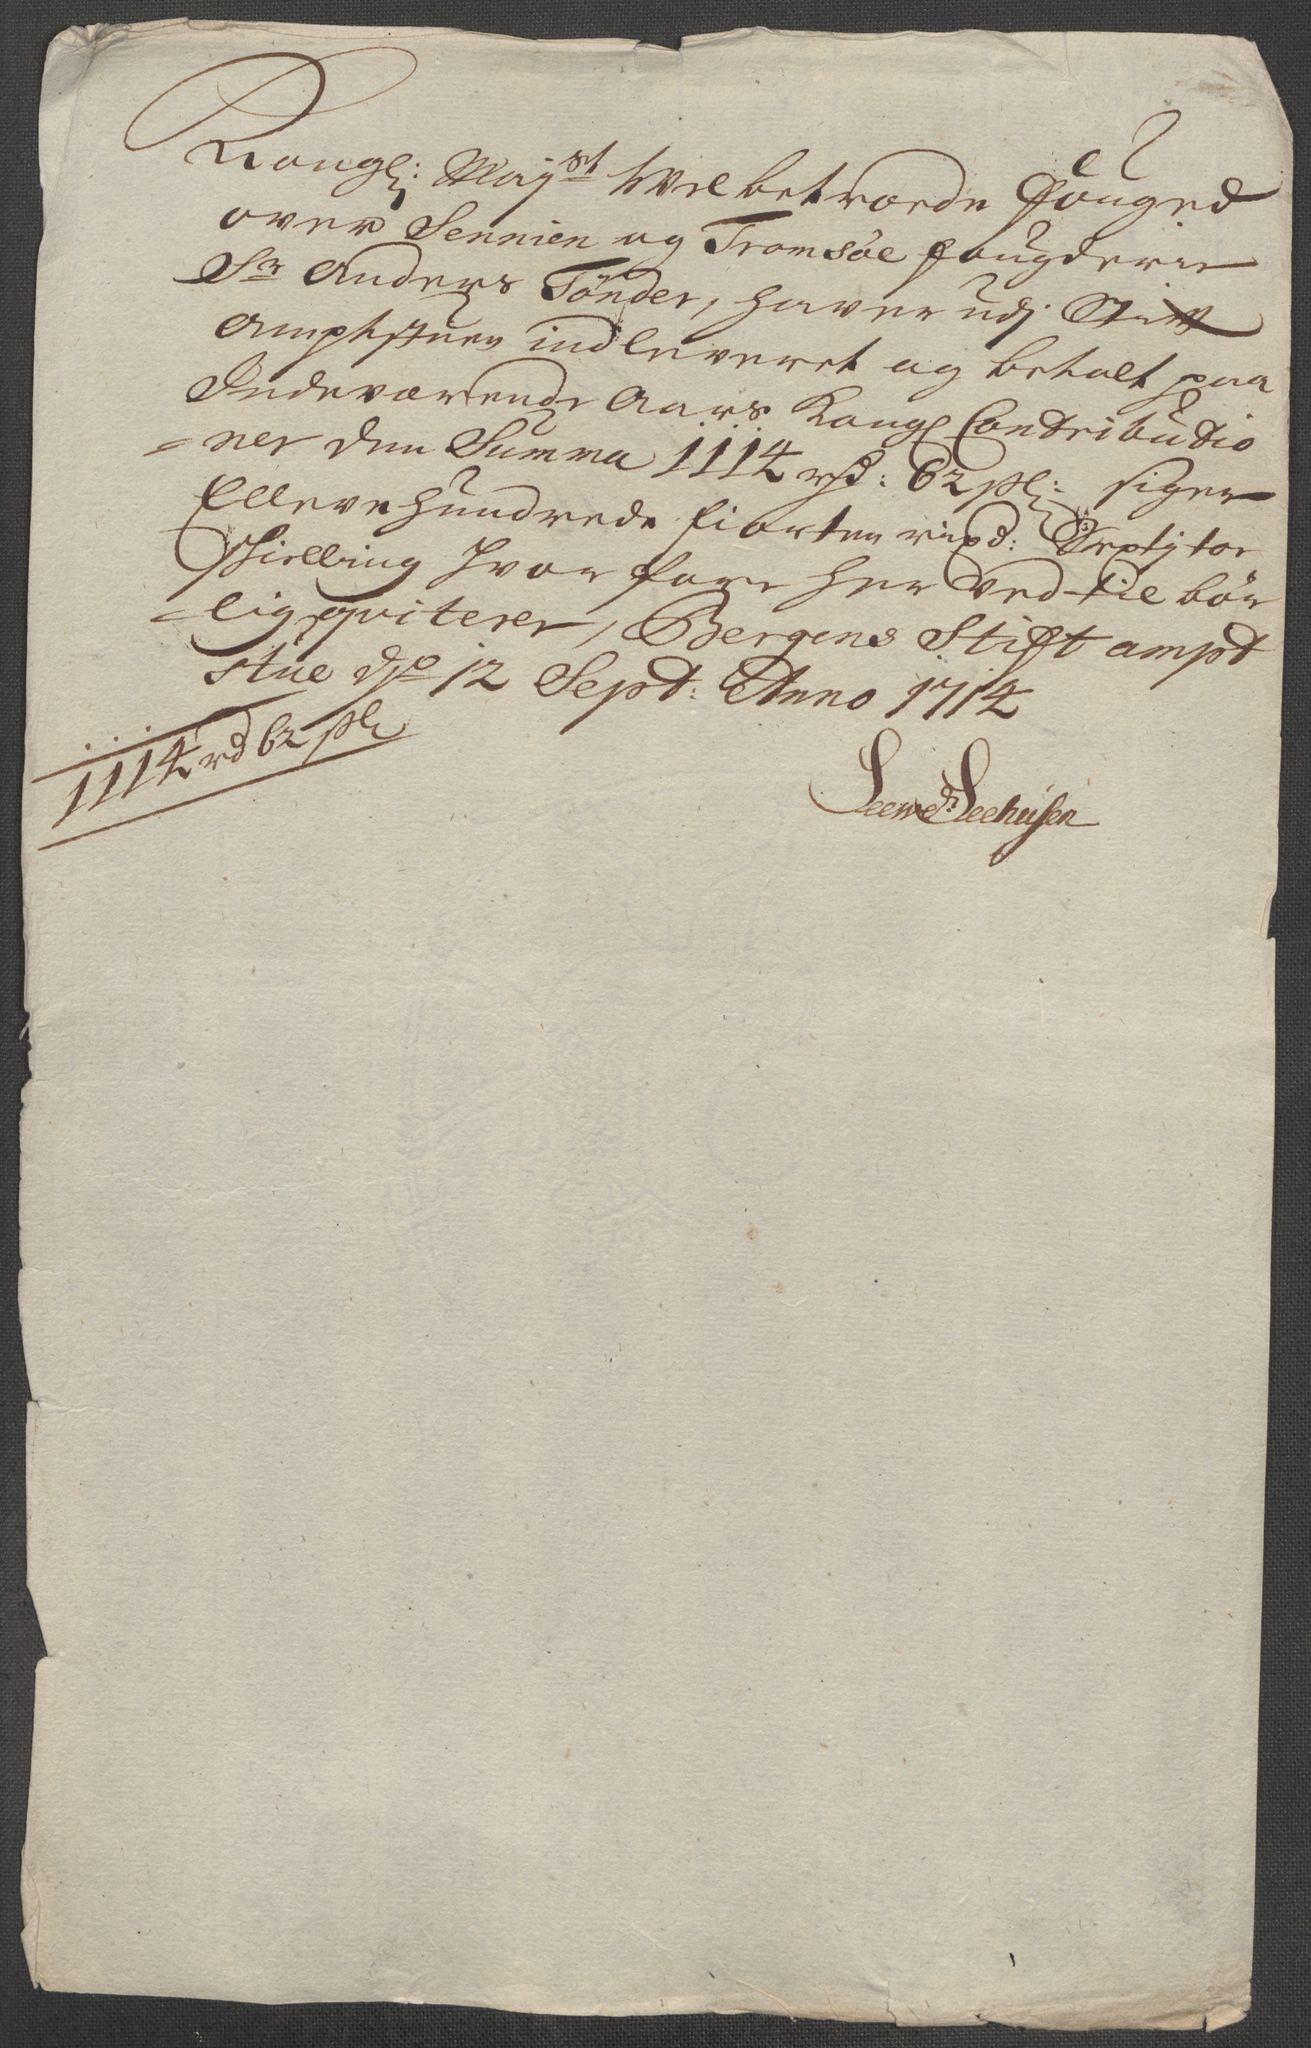 Kongl: Mayst Wel betroede Fouged
over Sennien og Tromsöe fougderie
Sr Anders Tönder, haver udj Stift
Amptstuen indleveret og betalt paa
Indeværende Aars Kongl Contributio
=ner den Summa 1114 rd: 62 sl: siger
Ellevehundrede fiorten rixd: Sextj toe
skielling hvor fore her ved til bör
=lig qviteres, Bergens Stift ampt
stue dn 12 Sept: Anno 1714
1114 rd 62 sl
Seehusen